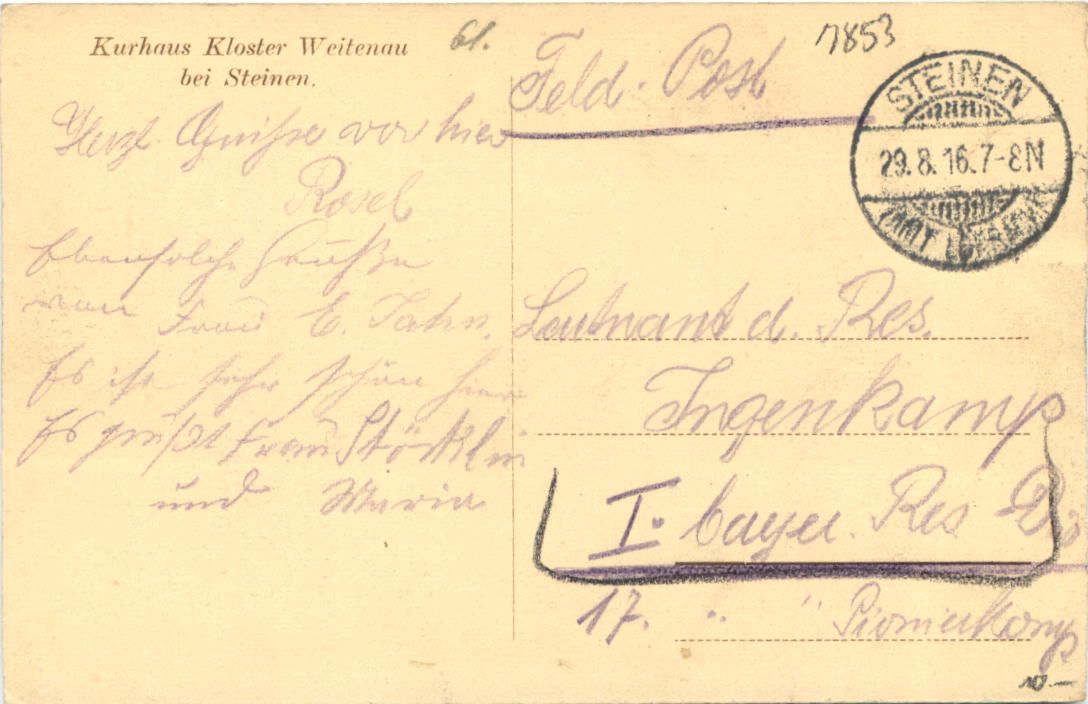 Kurhaus Kloster Weitenau
bei Steinen.
61.
17853
Feld-Post
STEINEN
29.8.16.7-8N
AMT LÖRRACH
Herzl. Grüße von hier
Rosel
Ebensolche Grüße
von Frau E. Jahn.
Es ist sehr schön hier
Es grüßt Frau Stöcklin
und Maria
Leutnant d. Res.
Ingenkamp
I. bayer. Res Div
17. " " Pionierkomp